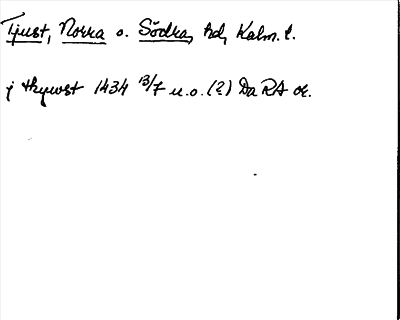 Tjust, Norra o. Södra, hd, Kalm. l.
j thywst 1434 13/7 u.o. (?) Da RA or.